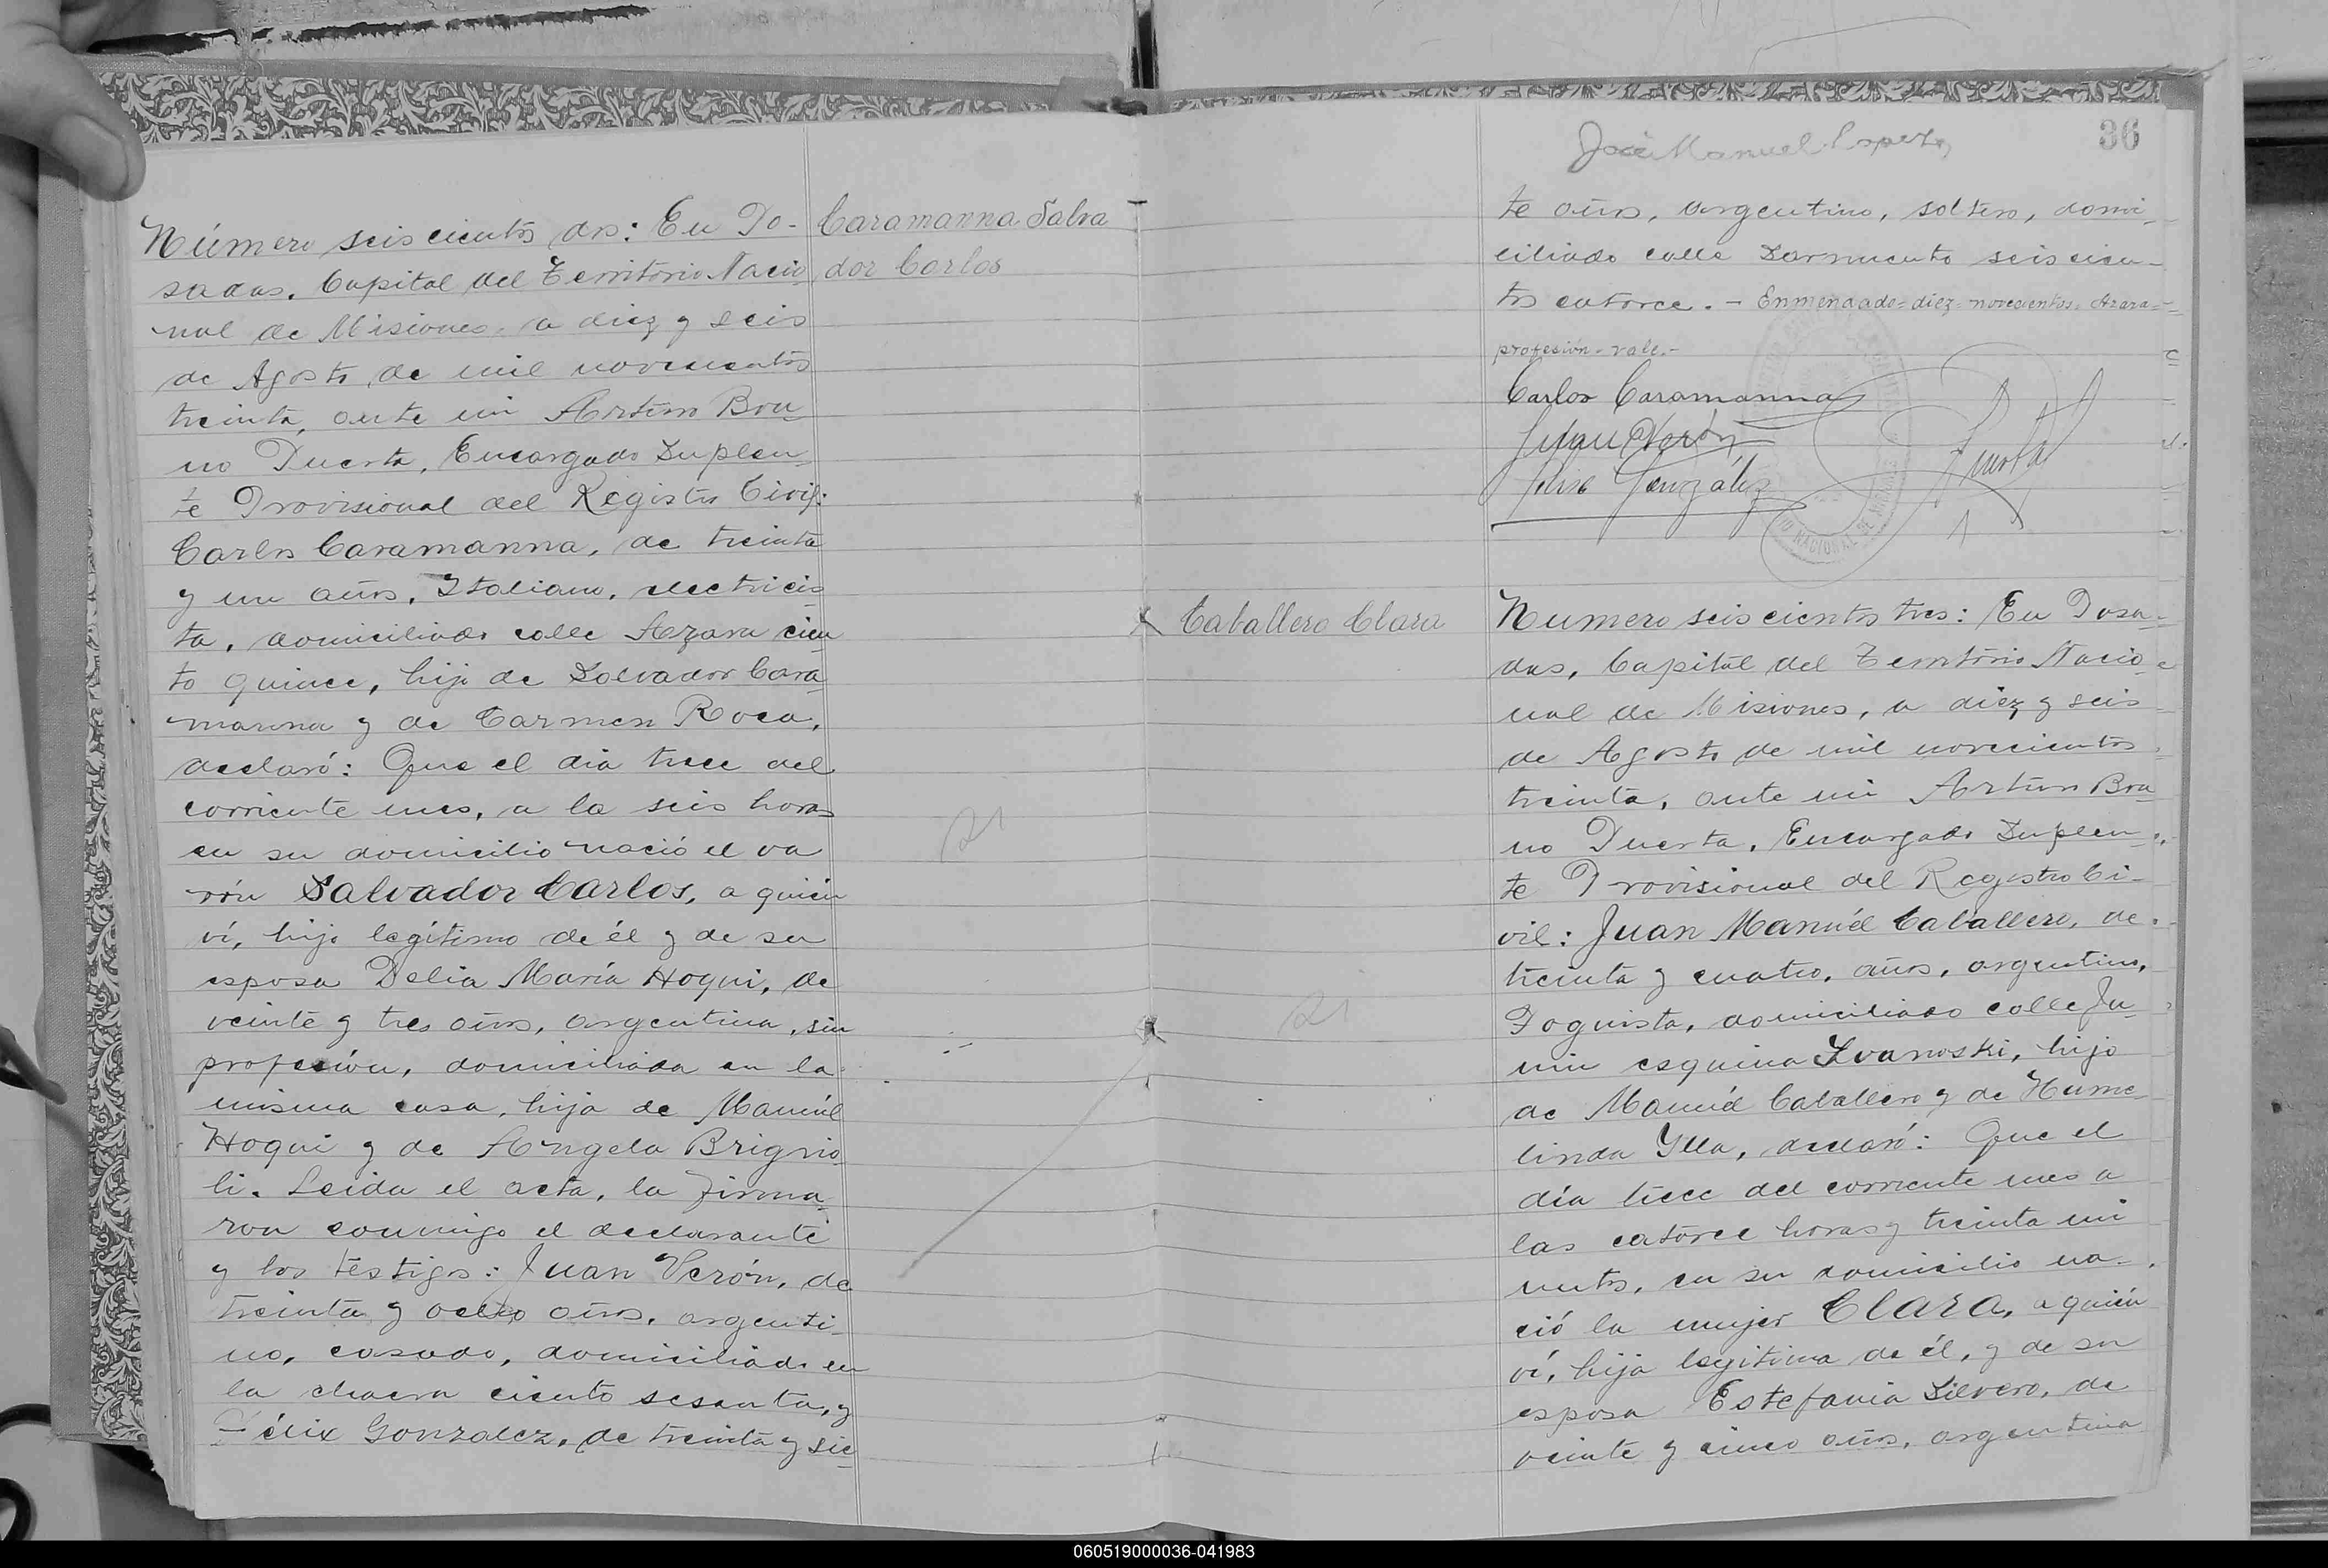 Número seiscientos dos: En Po-
sadas, Capital del Territorio Nacio
nal de Misiones, a diez y seis
de Agosto de mil novecientos
treinta, ante mi Arturo Bru
no Puerta, Encargado Suplen
te Provisional del Registro Civil:
Carlos Caramanna, de treinta
y un años, Italiano, electricis
ta, domiciliado calle Azara cien
to quince, hijo de Salvador Cara
manna y de Carmen Roca,
declaró: Que el dia trece del
corriente mes, a la seis horas
en su domicilio nació el va
rón Salvador Carlos, a quien
ví, hijo legítimo de él y de su
esposa Delia María Hoqui, de
veinte y tres años, argentina, sin
profesión, domiciliada en la
misma casa, hija de Manuel
Hoqui y de Angela Brignio
li. Leida el acta, la firma
ron conmigo el declarante
y los testigos: Juan Verón, de
treinta y ocho años, argenti-
no, casado, domiciliado en
la chacra ciento sesenta, y
Félix Gonzalez, de treinta y sie
Caramanna Salva
dor Carlos
21
José Manuel Lopez
36
te años, argentino, soltero, domi-
ciliado calle Sarmiento seiscien-
tos catorce. - Enmendado=diez=novecientos=Azara=
profesión=vale.-
Carlos Caramanna
Juan Verón
Félix González
Puerta
Caballero Clara
21
Numero seiscientos tres: En Posa-
das, Capital del Territorio Nacio
nal de Misiones, a diez y seis
de Agosto de mil novecientos
treinta, ante mi Arturo Bru
no Puerta, Encargado Suplen
te Provisional del Registro Ci-
vil: Juan Manuél Caballero, de
treinta y cuatro, años, argentino,
Foguista, domiciliado calle Ju
nin esquina Ivanoski, hijo
de Manuél Caballero y de Hume
linda Ylla, declaró: Que el
día trece del corriente mes a
las catorce horas y treinta mi
nutos, en su domicilio na-
ció la mujer Clara, a quién
ví, hija legitima de él, y de su
esposa Estefania Silvero, de
veinte y cinco años, argentina
060519000036-041983